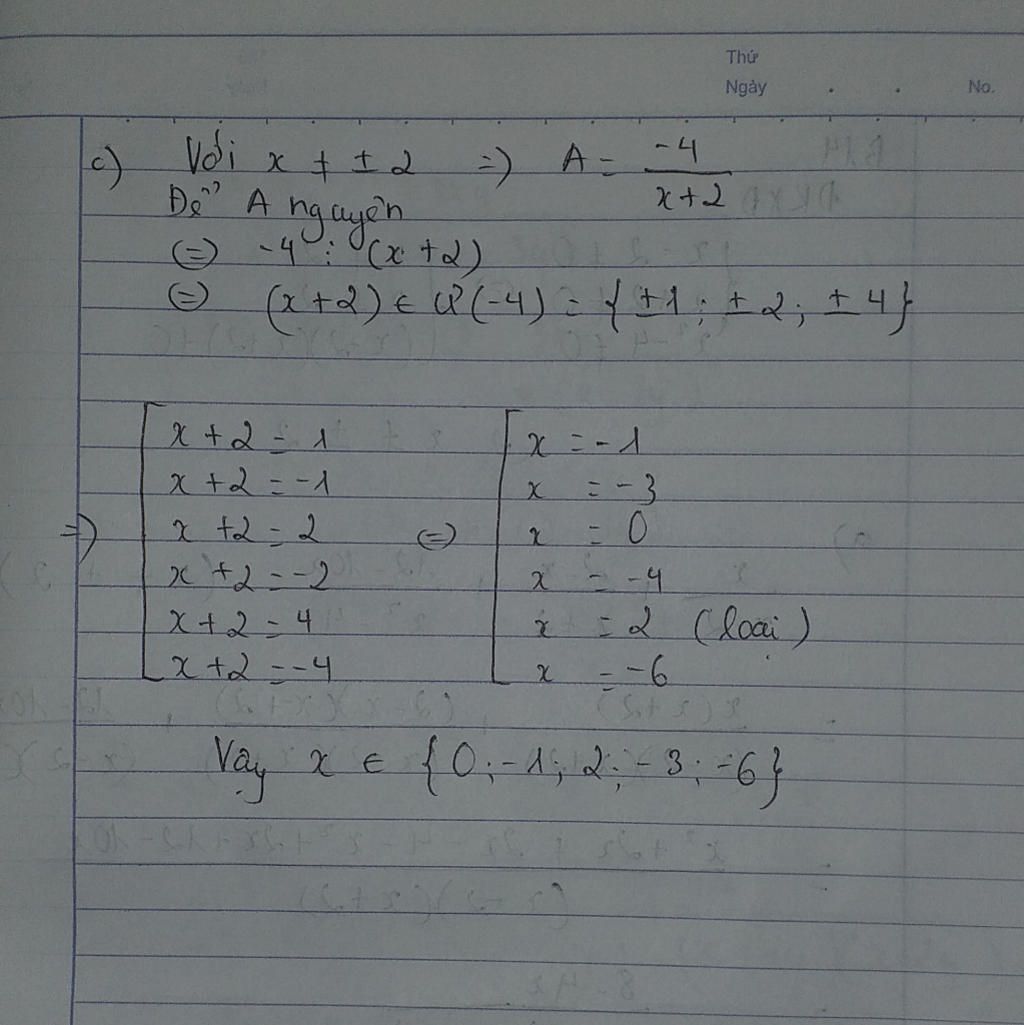 Thứ
Ngày . . No.
c) Với x ≠ ± 2 => A = -4/(x+2)
Để A nguyên
<=> -4 ⋮ (x+2)
<=> (x+2) ∈ Ư(-4) = {±1; ±2; ±4}
x+2 = 1 x = -1
x+2 = -1 x = -3
=> x+2 = 2 <=> x = 0
x+2 = -2 x = -4
x+2 = 4 x = 2 (loại)
x+2 = -4 x = -6
Vậy x ∈ {0; -1; 2; -3; -6}